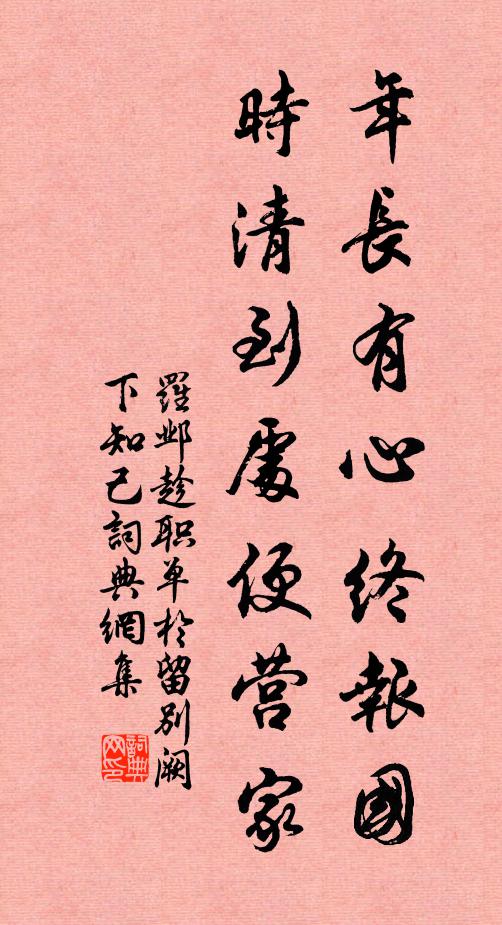 年長有心終報國
時清到處便营家
羅邺趁职单於留別阙
下知己詞典網集
詞典网印